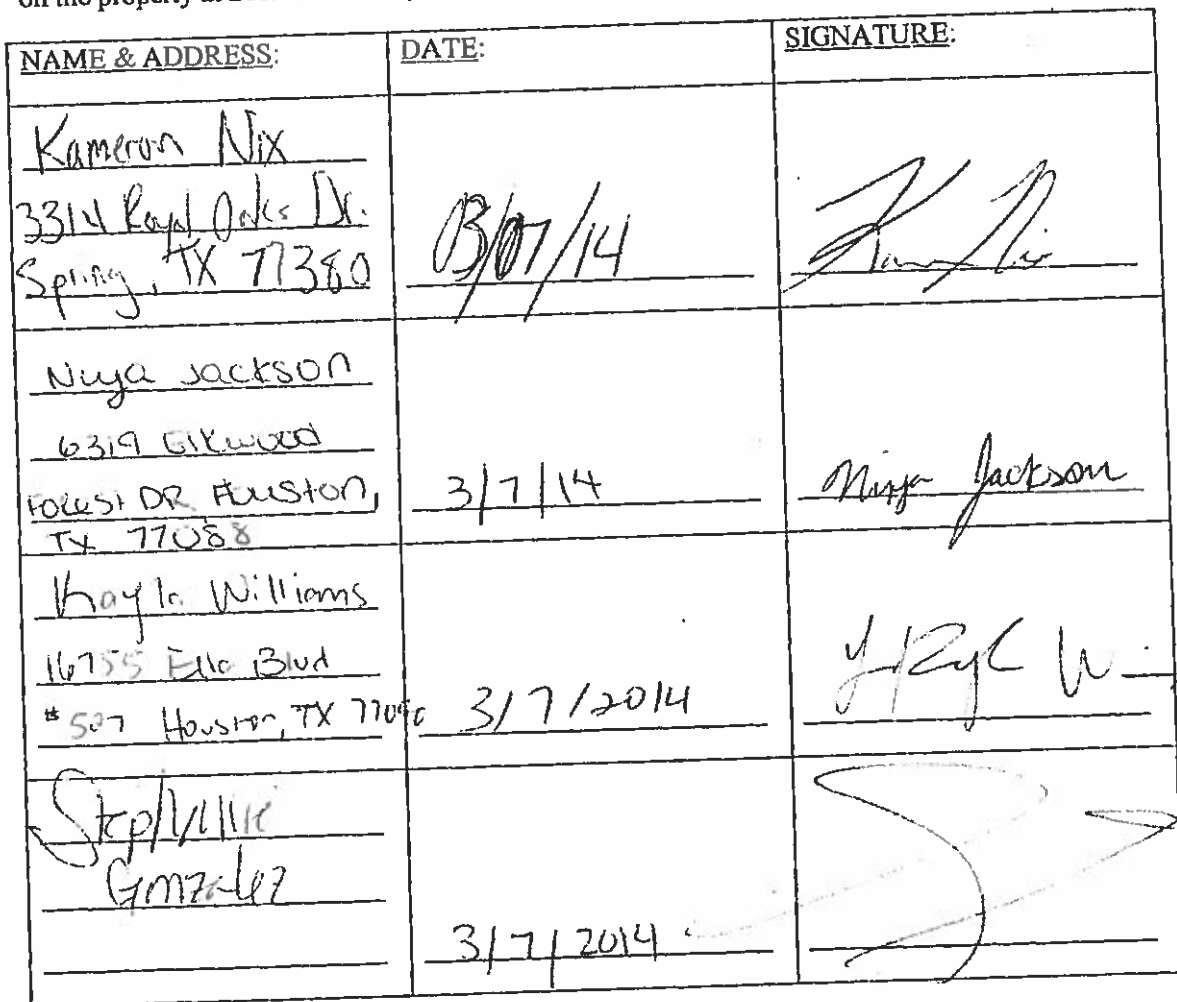 on the property at
NAME & ADDRESS: DATE: SIGNATURE:
Kameron Nix
3314 Royal Oaks Dr.
Spring, TX 77380 03/07/14
Niya Jackson
6319 Elkwood
Forest DR Houston, 3/7/14 Niya Jackson
TX 77088
Kayla Williams
16755 Ella Blvd
# 507 Houston, TX 77090 3/7/2014
Stephanie
Gonzalez
3/7/2014